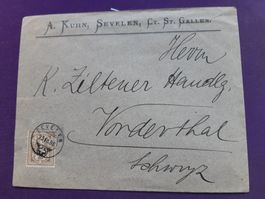 A. KUHN, SEVELEN, CT. ST. GALLEN.
Herrn
K. Zeltener Handlg.
Vorderthal
Schwyz
SEVELEN